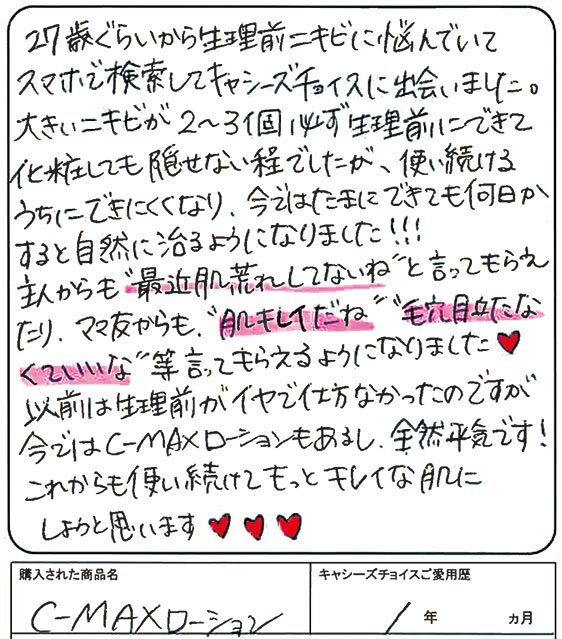 27歳ぐらいから生理前ニキビに悩んでいて
スマホで検索してキャシーズチョイスに出会いました。
大きいニキビが2〜3個必ず生理前にできて
化粧しても隠せない程でしたが、使い続ける
うちにできにくくなり、今ではたまにできても何日か
すると自然に治るようになりました!!!
主人からも"最近肌荒れしてないね"と言ってもらえ
たり、ママ友からも、"肌キレイだね""毛穴目立たな
くていいな"等言ってもらえるようになりました♥
以前は生理前がイヤで仕方なかったのですが
今ではC-MAXローションもあるし、全然平気です!
これからも使い続けてもっとキレイな肌に
しようと思います♥♥♥
購入された商品名
キャシーズチョイスご愛用歴
C-MAXローション
1年 ヵ月